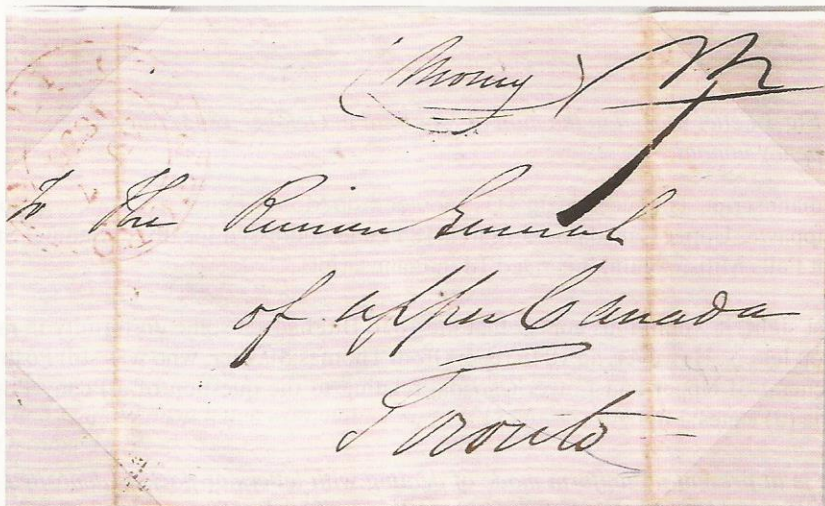 (Money)
To The Receiver General
of Upper Canada
Toronto